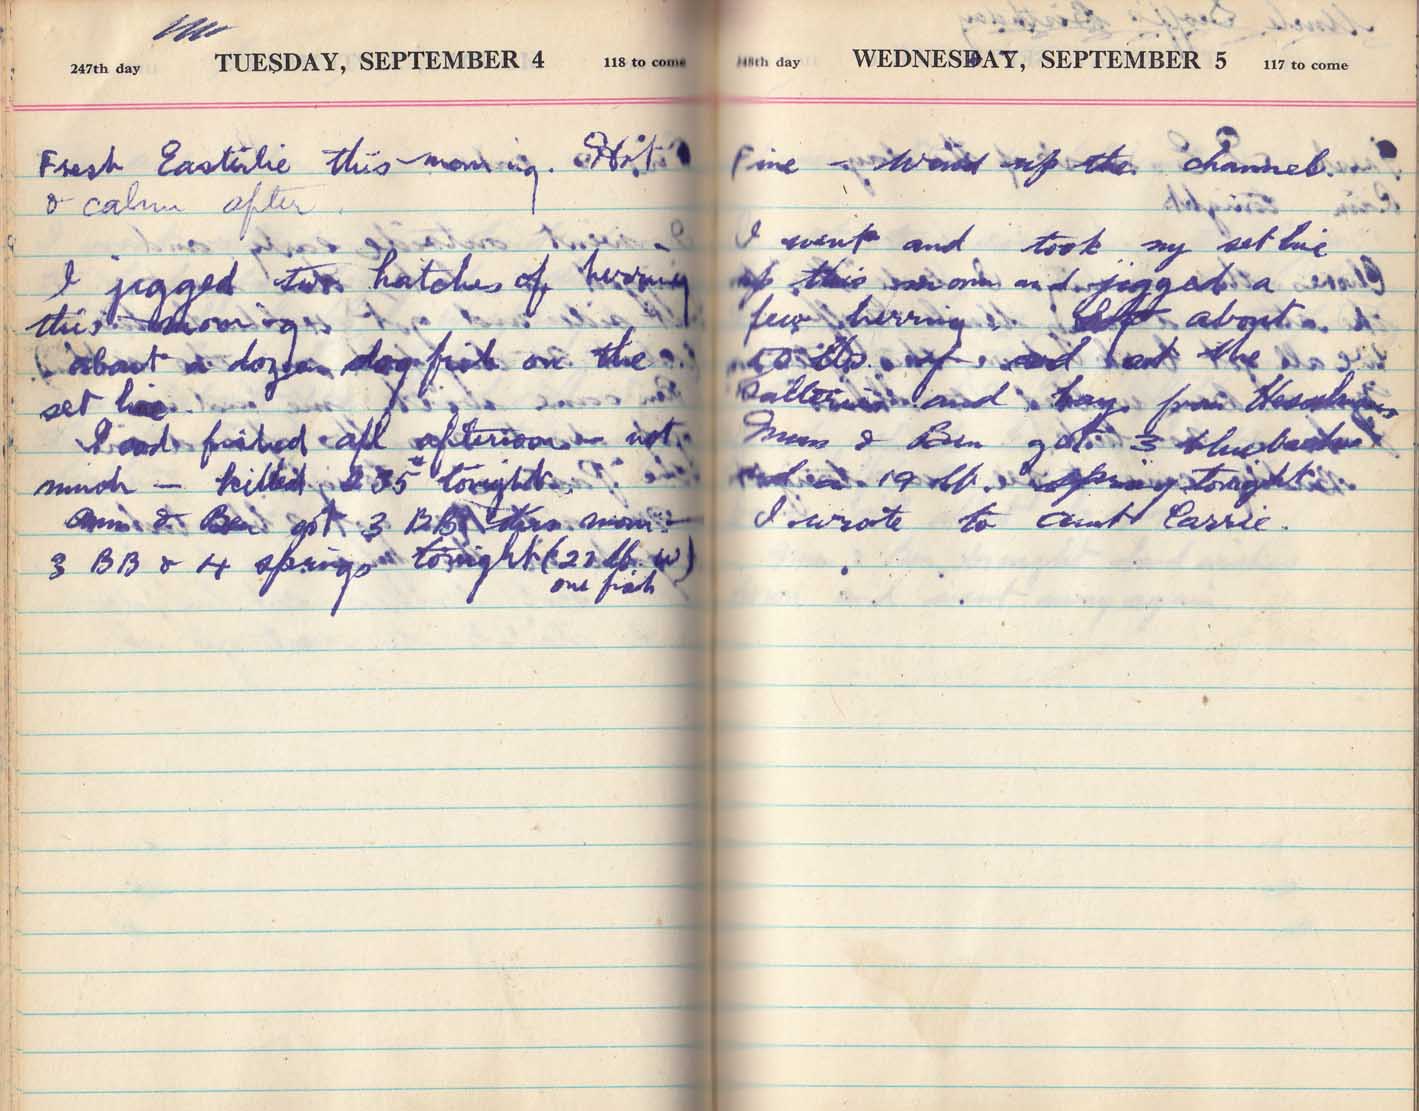 247th day TUESDAY, SEPTEMBER 4 118 to come
Fresh Easterlie this morning. Hot
& calm after.
I jigged two hatches of herring
this morning
about a dozen dogfish on the
set line.
I cod fished all afternoon not
much — killed 235# tonight.
Mum & Ben got 3 BBs this morn —
3 BB & 4 springs tonight (27 lb. w)
one fish
248th day WEDNESDAY, SEPTEMBER 5 117 to come
Fine — wind up the channel.
I went and took my set line
up this and jigged a
few herring. about
lbs. of cod at the
and hay from
Mum & Ben got 3 bluebacks
and a 19 lb. spring tonight
I wrote to aunt Carrie.